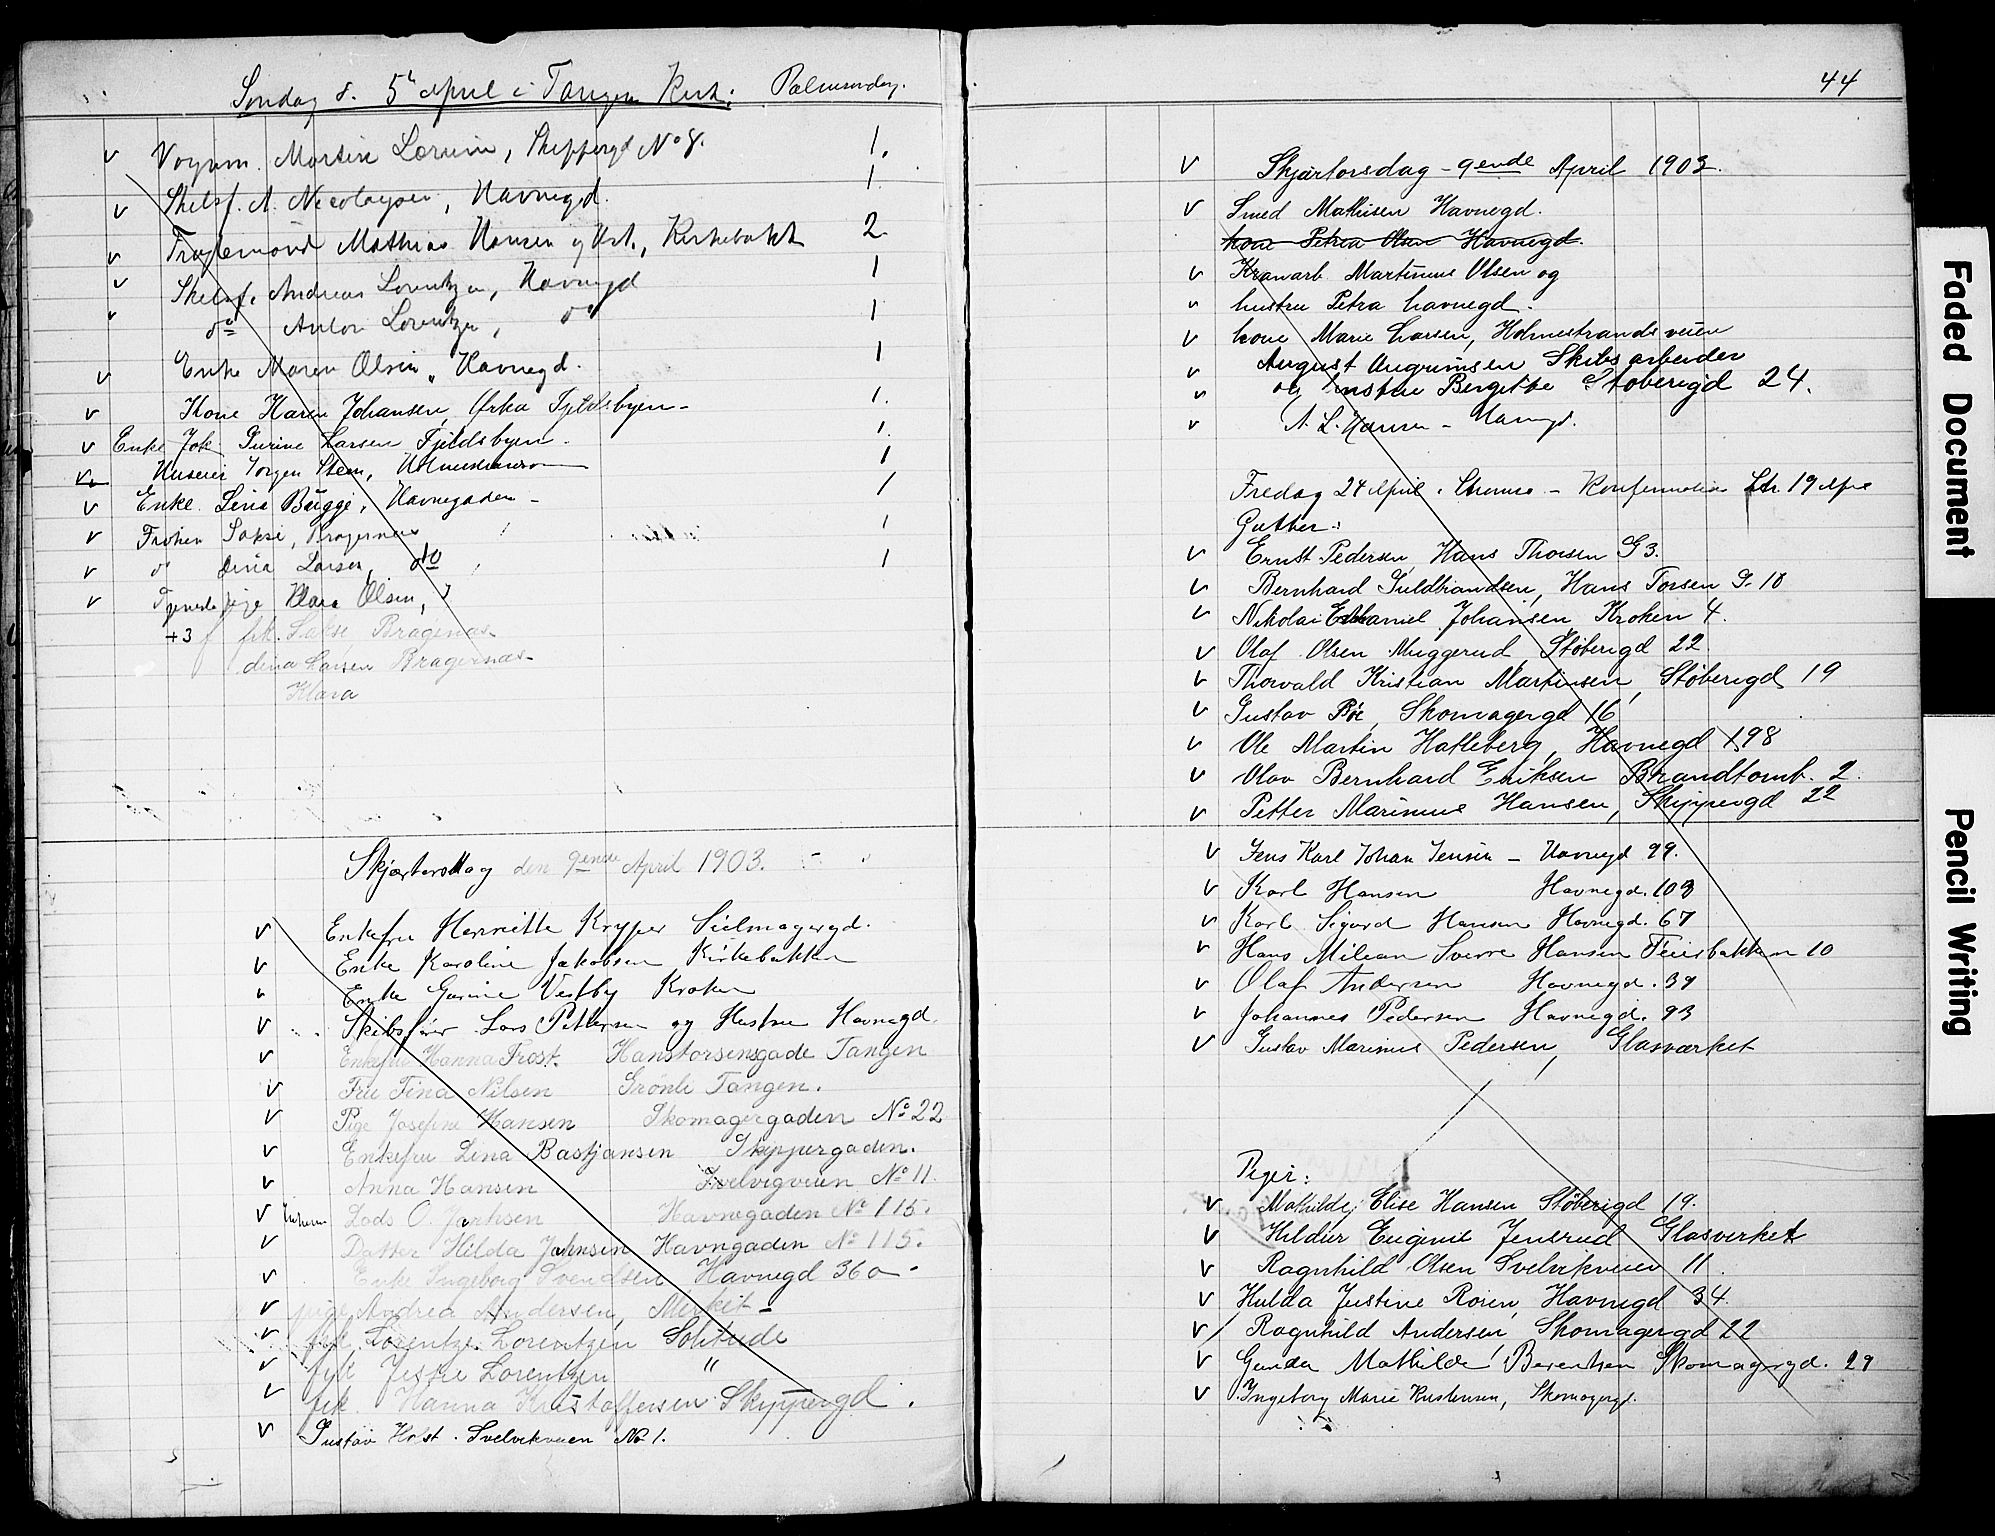 Søndag d. 5te April i Tangen Kirk: Palmesøndag.
v Vognm. Martin , Skippergd No 8. 1.
v Skibsf. A. Nicolaysen, Havnegd. 1
v Mathias Hansen og Hst., Kirkebakk 2
v Skibsf. Andreas Lorentzen, Havnegd 1
" do Anton Lorentzen, do 1
v Enke Maren Olsen, Havnegd. 1
v Kone Karen Johansen, Fjeldsbyen - 1.
v Enke Gurine Larsen Fjeldsbyen. 1.
v Jørgen Steen, 1
v Enke Lina Bugge, Havnegaden - 1
v Frøken Sakse, Bragernæs 1
v do Lina Larsen, do 1
v Tjenestepige Klara Olsen,
+3 frk. Sakse Bragenæs
dina Larsen Bragernæs-
Klara
Skjærtorsdag den 9ende April 1903.
v Enkefru Henriette Kryper Seilmagergd.
v Enke Karoline Jakobsen Kirkebakken
v Enke Gurine Vestby Kroken
v Skibsfører Lars Pettersen og Hustru Havnegd.
v Enkefru Hanna Frost. Hanstorsensgade Tangen
v Fru Tina Nilsen Grönli Tangen.
v Pige Josefine Hansen Skomagergaden No 22
v Enkefru Lina Bastjansen Skippergaden.
v Anna Hansen Svelvigveien No 11.
v Lods O. Jahnsen Havnegaden No 115.
v Datter Hilda Jahnsen Havngaden No 115.
v Enke Ingeborg Svendsen Havnegd 36a -
v pige Andrea Andersen, Merket -
v frk Lorentze Lorentzen Solitude
v frk Lorentzen "
v frk. Hanna Kristoffersen Skyppergd.
v Gustav Holst. Svelvikveien No 1.
44
v Skjærtorsdag - 9ende April 1903.
v Smed Mathisen Havnegd.
kone Petrea Olsen Havnegd.
v Kranarb. Martinius Olsen og
v hustru Petra havnegd.
v kone Marie Larsen, Holmestrandsveien
v August Angrimsen Skibsarbeider
v og hustru Bergitte Støberigd 24.
v A. L. Hansen - Havngd.
Fredag 24 April i Strømsø - Konfirmation 19 Apr
Gutter:
v Ernst Pedersen, Hans Thorsen G 3.
v Bernhard Guldbrandsen, Hans Torsen G. 10
v Nikolai Johansen, Kroken 4.
v Olaf Olsen Muggerud, Støberigd 22
v Thorvald Kristian Martinsen, Støberigd 19
v Gustav Bøe, Skomagergd 16
v Ole Martin Hatleberg, Havnegd 198
v Olav Bernhard Eriksen Brandtomt. 2.
v Petter Marinius Hansen, Skippergd 22
v Jens Karl Johan Jensen - Havnegd 99.
v Karl Hansen Havnegd. 103
v Karl Sigurd Hansen Havnegd. 67
v Hans Milian Sverre Hansen Feierbakken 10
v Olaf Andersen Havnegd. 39
v Johannes Pedersen Havnegd. 93
v Gustav Marinius Pedersen, Glasværket
Piger:
v Mathilde Elise Hansen Støberigd 19.
v Hildur Eugenie Jensrud Glasverket
v Ragnhild Olsen Svelvikveien 11.
v Hulda Justine Roren, Havnegd 34.
v Ragnhild Andersen, Skomagergd 22
v Gunda Mathilde Berentsen Skomagergd. 29
v Ingeborg Marie Kristensen, Skomagergd.
Faded Document
Pencil Writing